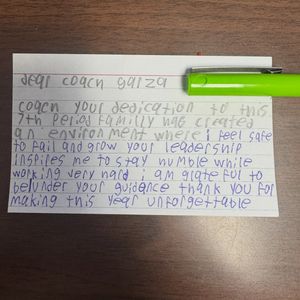 dear coach garza
coach your dedication to this
7th period familly has created
an environment where i feel safe
to fail and grow your leadership
inspires me to stay humble while
working very hard i am grateful to
be under your guidance thank you for
making this year unforgettable